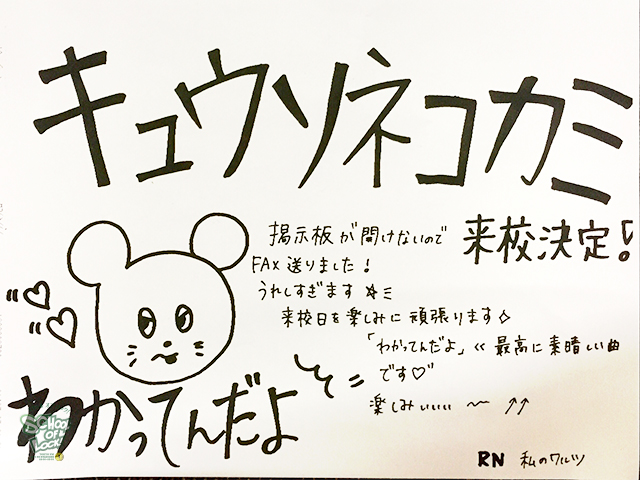 キュウソネコカミ
来校決定!
掲示板が開けないので
FAX送りました!
うれしすぎます☆ミ
来校日を楽しみに頑張ります◇
「わかってんだよ」<< 最高に素晴しい曲
です♡
楽しみぃぃぃ 〜 ↑↑
わかってんだよ
SCHOOL
OF
LOCK!
RN 私のワルツ